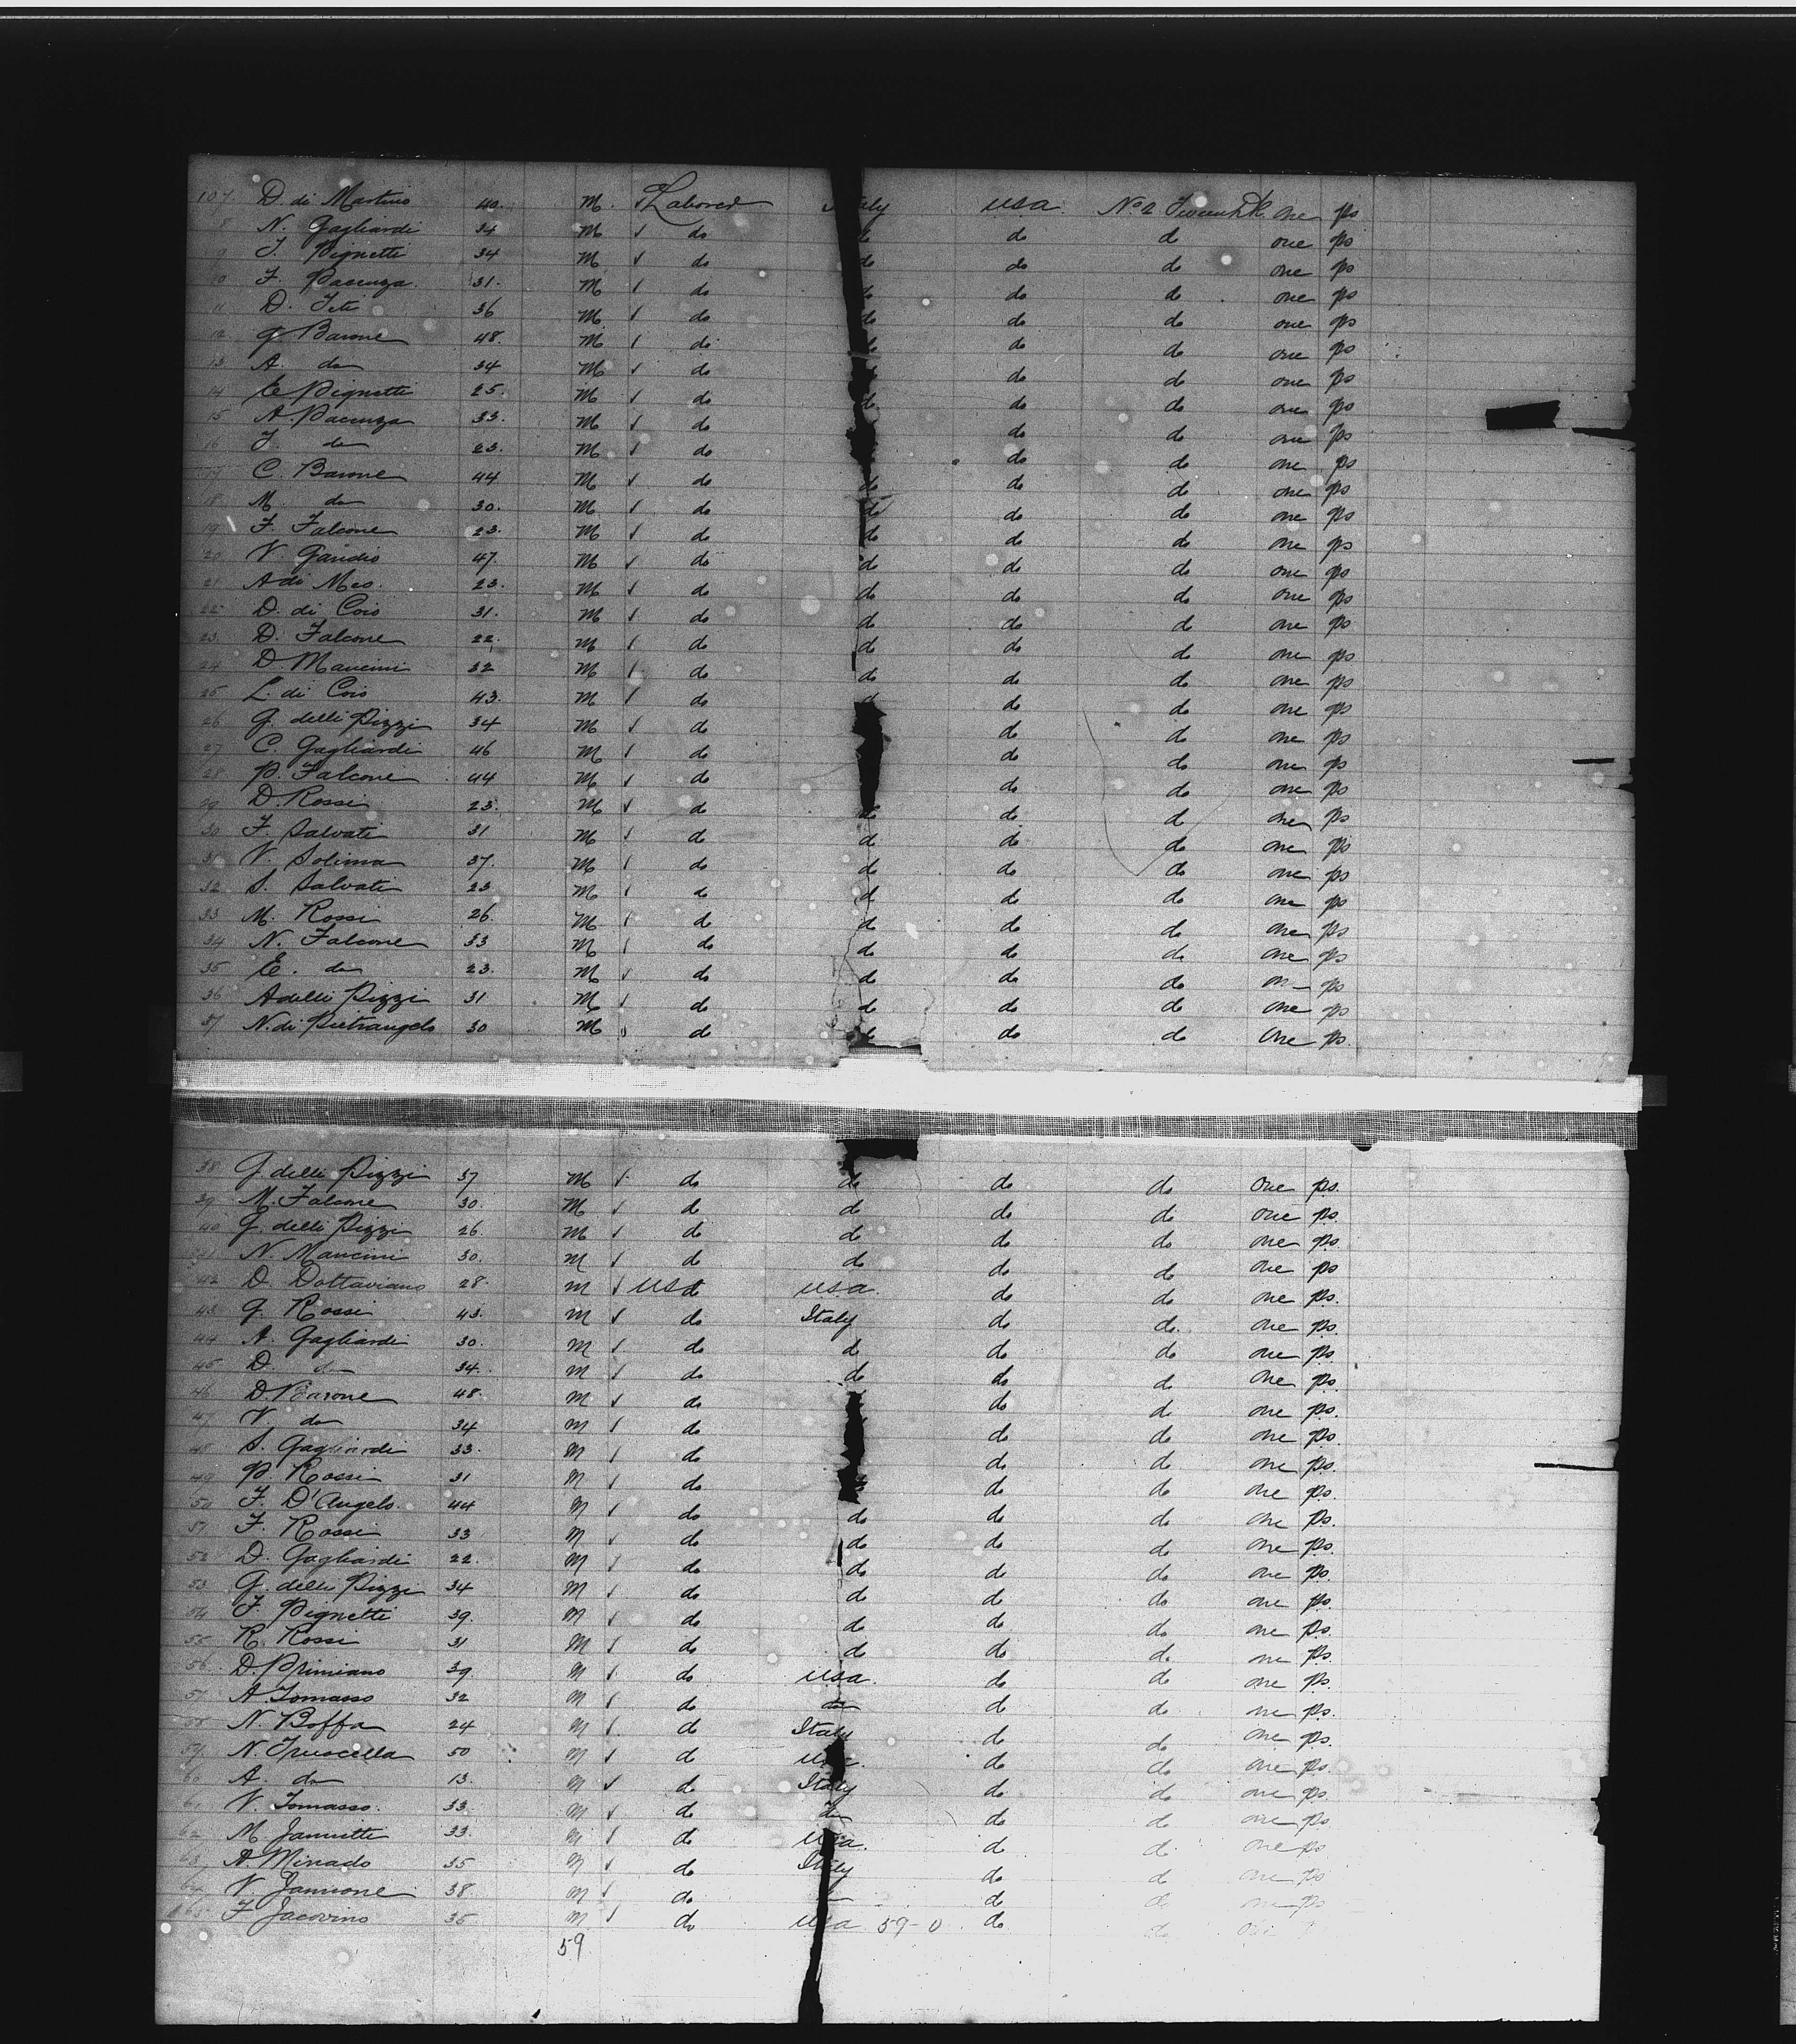 107 D. di Martino 40. M. Laborer Italy USA No 2 one ps
8 N. Gagliardi 34 M do do do do one ps
9 F. Pignetti 34 M do do do do one ps
10 F. Pacenza. 31. M do do do do one ps
11 D. Teti 36 M do do do do one ps
12 G. Barone 48. M do do do do one ps
13 A. do 34 M do do do one ps
14 E Pignetti 25. M do do do do one ps
15 A. Pacenza 33. M do do do one ps
16 F. do 23. M do do do one ps
17 C. Barone 44 M do do do do one ps
18 M. do 30. M do do do do one ps
19 F. Falcone 23. M do do do do one ps
20 V. Gaudio 47. M do do do do one ps
21 A di Meo. 23. M do do do do one ps
22 D. di Cois 31. M do do do do one ps
23 D. Falcone 22. M do do do do one ps
24 D. Mancini 32 M do do do do one ps
25 L. di Cois 43. M do do do do one ps
26 G. delli Pizzi 34 M do do do one ps
27 C. Gagliardi 46 M do do do one ps
28 P. Falcone 44 M do do do one ps
29 D. Rossi 23. M do do do do one ps
30 F. Salvati 31 M do do do do one ps
31 V. Solima 37. M do do do do one ps
32 S. Salvati 23 M do do do do one ps
33 M. Rossi 26. M do do do do one ps
34 N. Falcone 33 M do do do do one ps
35 E. do 23. M do do do do on— ps
36 A delli Pizzi 31. M do do do do one ps
37 N. di Pietrangelo 30 M do do do do One ps.
38 G. delli Pizzi 37 M do do do do one ps.
39 M. Falcone 30. M do do do do one ps.
40 G. delli Pizzi 26. M do do do do one ps.
41 N. Mancini 30. M do do do do one ps
42 D. Dottaviano 28. M USA do USA. do do one ps.
43 G. Rossi 43. M do Italy do do. one ps.
44 A. Gagliardi 30. M do do do do one ps.
45 D. do 34. M do do do do one ps.
46 D. Barone 48. M do do do one ps.
47 V. do 34 M do do do one ps.
48 S. Gagliardi 33. M do do do one ps.
49 P. Rossi 31 M do do do one ps.
50 F. D'Angelo. 44 M do do do do one ps.
51 F. Rossi 33 M do do do do one ps.
52 D. Gagliardi 22. M do do do do one ps.
53 G. delli Pizzi 34 M do do do do one ps.
54 F. Pignetti 39. M do do do do one ps.
55 R. Rossi 31 M do do do do one ps.
56 D. Primiano 39 M do USA. do do one ps.
57 A. Tomasso 32 M do do do do one ps.
58 N. Boffa 24 M do Italy do do one ps.
59 N. Truscella 50 M do USA. do do one ps.
60 A. do 13. M do Italy do do one ps.
61 V. Tomasso. 33. M do do do do one ps.
62 M. Jannetti 33. M do USA. do do one ps
63 A. Minado 35 M do Italy do do one ps
64 V. Jannone 38. M do do do one ps
165 F. Jacovino 35 M do USA 59-0 do do
59.